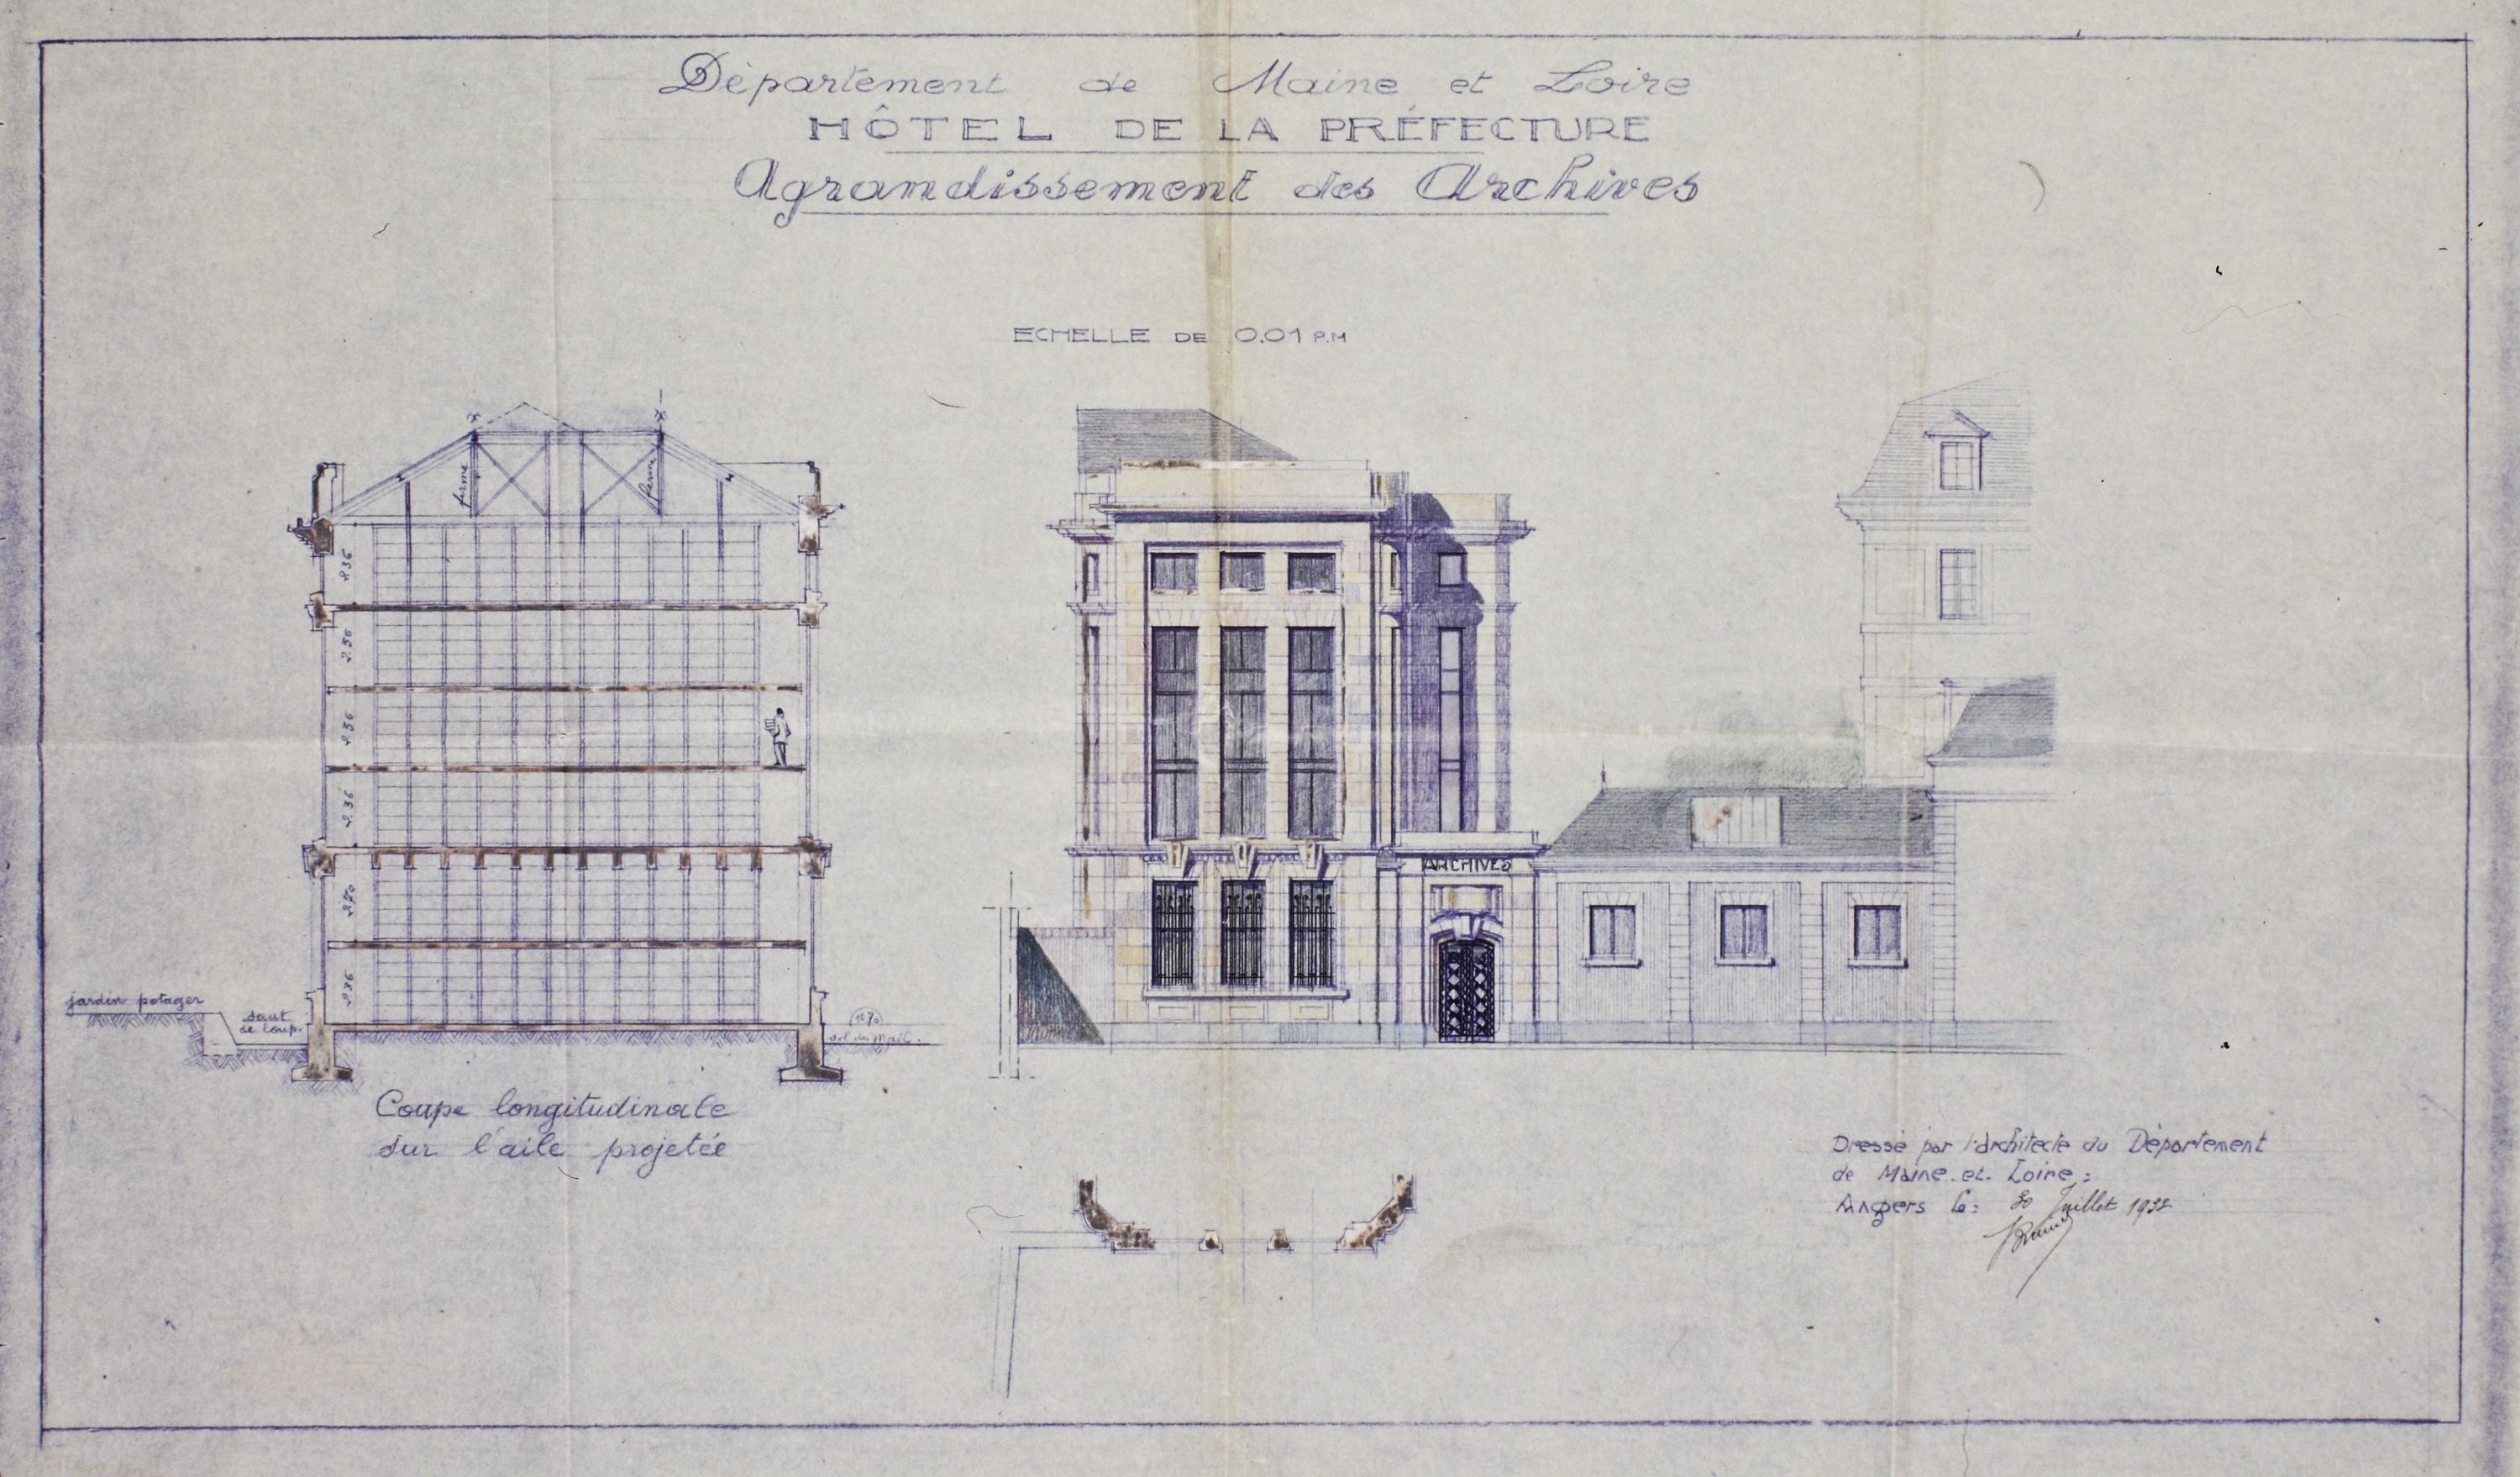 Département de Maine et Loire
HÔTEL DE LA PRÉFECTURE
Agrandissement des Archives
ECHELLE DE 0.01 P.M
ferme
ferme
2.36
2.36
2.36
2.36
2.70
2.36
jardin potager
saut
de loup.
sol du Mail.
Coupe longitudinale
sur l'aile projetée
ARCHIVES
Dressé par l'Architecte du Département
de Maine et Loire :
Angers le : 30 Juillet 1932